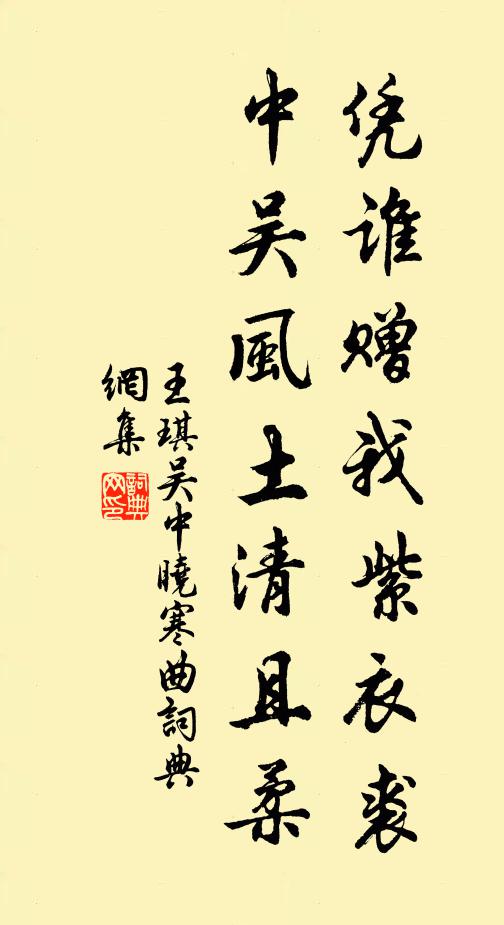 凭谁赠我紫衣裘
中吴風土清且柔
王琪吴中曉寒曲詞典
網集
詞典
网印